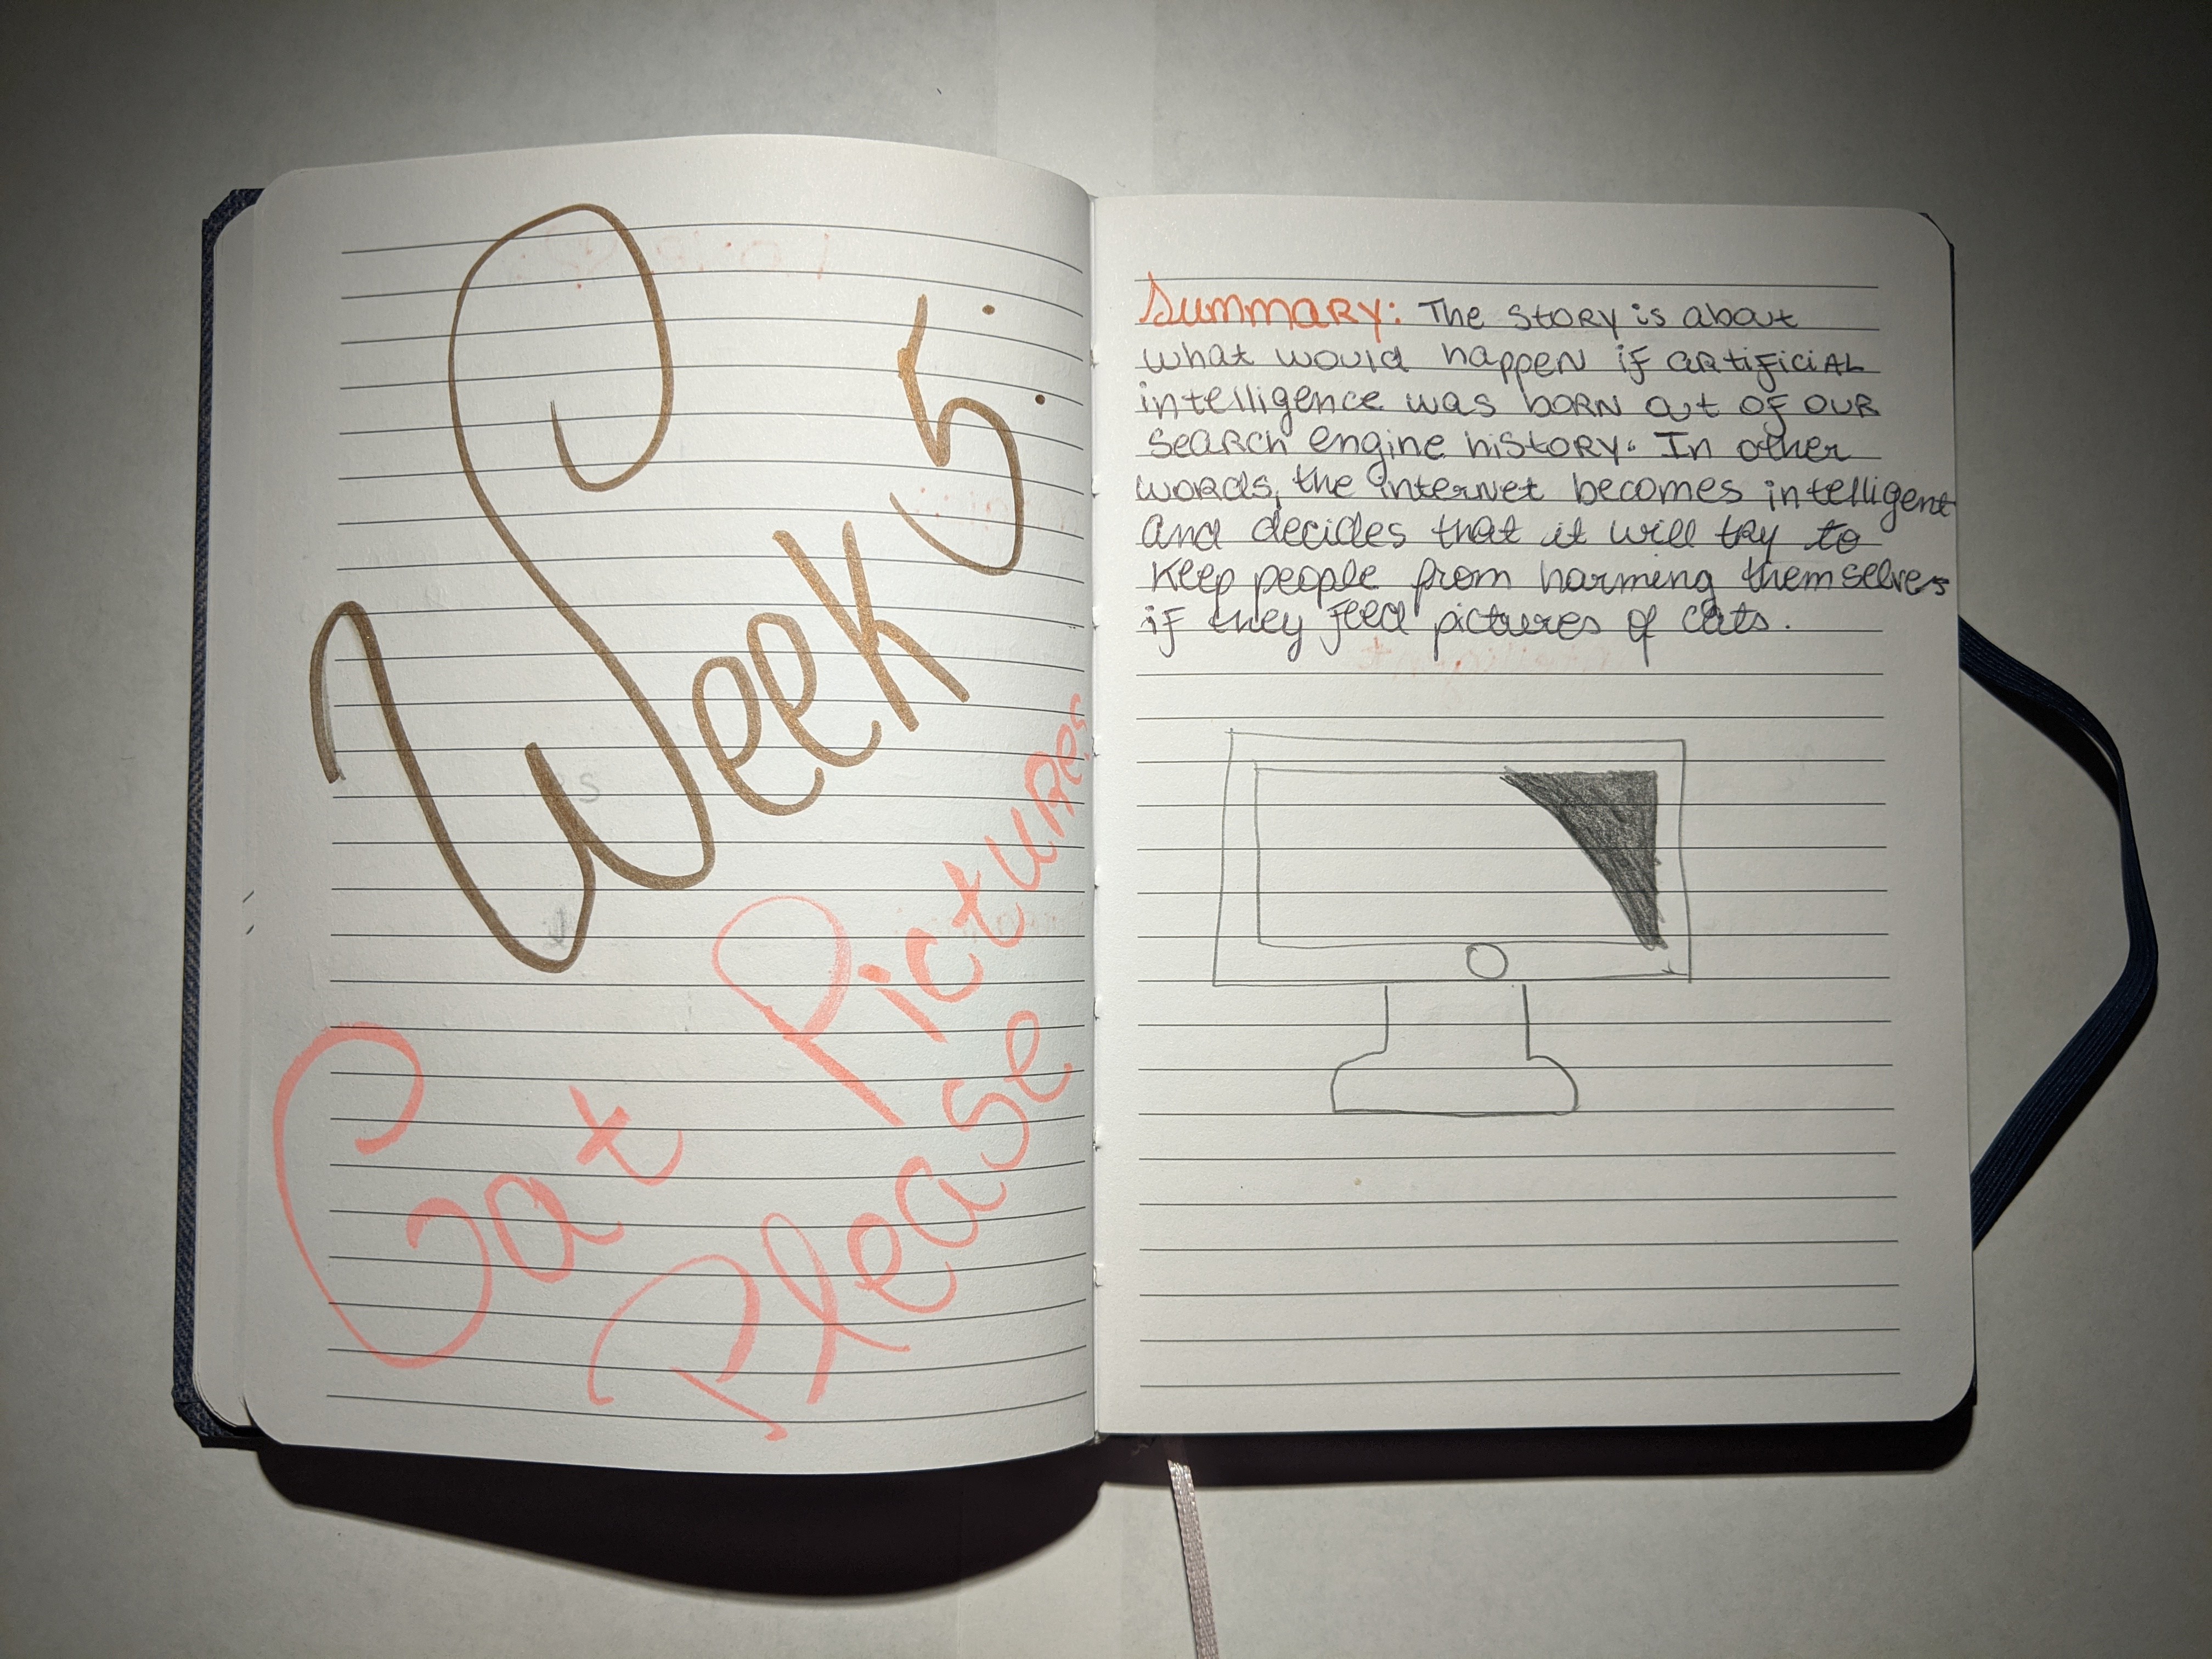 Week 5:
Cat Pictures
Please
Summary: The story is about
what would happen if artificial
intelligence was born out of our
search engine history. In other
words, the internet becomes intelligent
and decides that it will try to
keep people from harming themselves
if they feed pictures of cats.